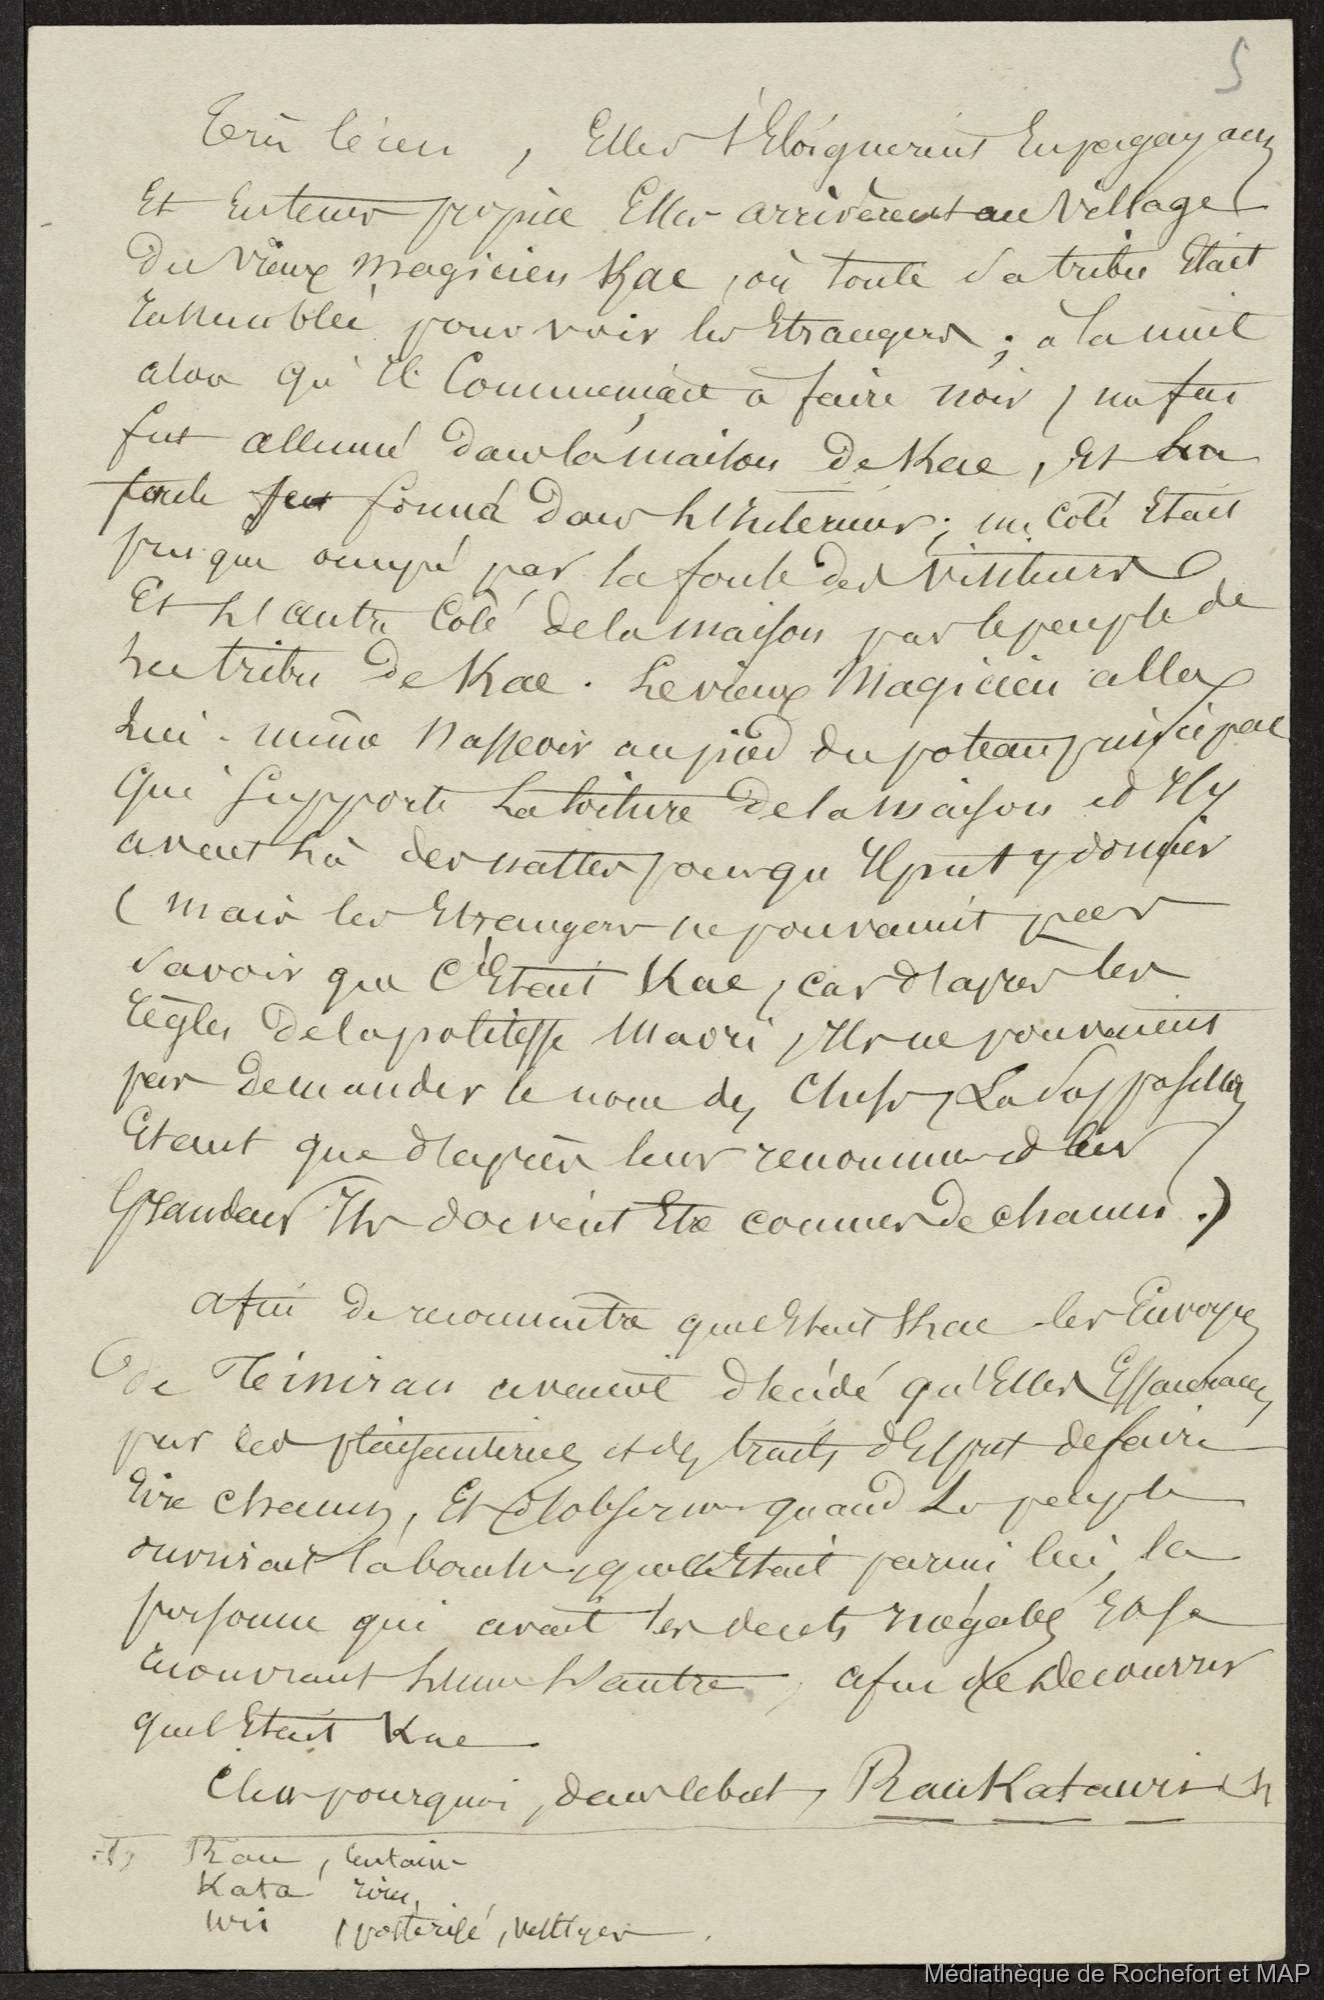 5
Très bien, Elles s'Eloignerent En pagayant
Et En tems propice Elles arrivèrent au Village
Du Vieux magicien Kae, où toute sa tribu Etait
rassemblée pour voir les Etrangers ; à la nuit
alors qu'Il Commençait à faire noir, un feu
fut allumé dans la maison de Kae, Et La
foule fut formée dans L'Interieur ; un Coté Etait
presque occupé par la foule des Visiteurs
Et L'autre Coté de la maison par le peuple de
La tribu de Kae. Le vieux Magicien alla
Lui-même s'asseoir au pied du poteau principal
Qui supporte La toiture de la maison et Il y
avait Là des nattes pour qu'Il put y dormir
( Mais les Etrangers ne pouvaient pas
savoir que C'Etait Kae, car d'après les
règles de la politesse Maori, Ils ne pouvaient
pas demander le nom des Chefs, La supposition
Etant que d'après leur renommée et leur
Grandeur Ils doivent Etre connus de chacun.)
afin de reconnaitre quel Etait Kae les Envoyés
de Teinirau avaient décidé qu'Elles Essayeraient
par des plaisanteries et des traits d'Esprit de faire
rire chacun, Et d'observer quand Le peuple
ouvrirait la bouche, quelle Etait parmi lui, la
personne qui avait les dents inégales Et se
recouvrant L'une L'autre, afin de decouvrir
quel Etait Kae
C'est pourquoi, dans le but, Raukatauri
Rau, Centaine
Kata rire,
Wri, postérité, vestiges.
Médiathèque de Rochefort et MAP